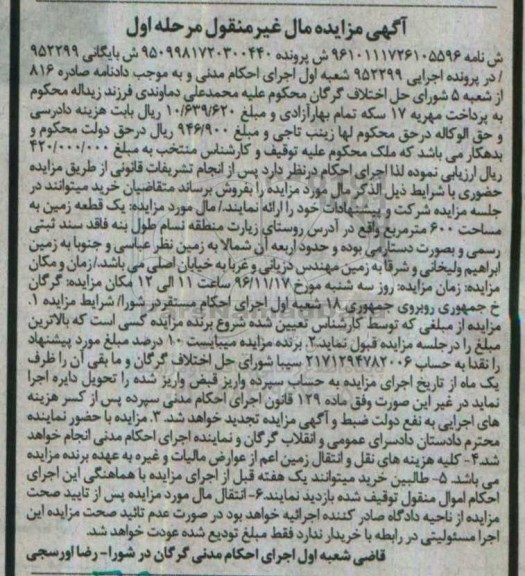 آگهی مزایده مال غیرمنقول مرحله اول
ش نامه ۹۶۱۰۱۱۱۷۲۶۱۰۵۵۹۶ ش پرونده ۹۵۰۹۹۸۱۷۲۰۳۰۰۴۴۰ ش بایگانی ۹۵۲۲۹۹
/ در پرونده اجرایی ۹۵۲۲۹۹ شعبه اول اجرای احکام مدنی و به موجب دادنامه صادره ۸۱۶
از شعبه ۵ شورای حل اختلاف گرگان محکوم علیه محمدعلی دماوندی فرزند زیداله محکوم
به پرداخت مهریه ۱۷ سکه تمام بهارآزادی و مبلغ ۱۰/۶۳۹/۶۲۰ ریال بابت هزینه دادرسی
و حق الوکاله درحق محکوم لها زینب تاجی و مبلغ ۹۴۶/۹۰۰ ریال درحق دولت محکوم و
بدهکار می باشد که ملک محکوم علیه توقیف و کارشناس منتخب به مبلغ ۴۲۰/۰۰۰/۰۰۰
ریال ارزیابی نموده لذا اجرای احکام درنظر دارد پس از انجام تشریفات قانونی از طریق مزایده
حضوری با شرایط ذیل الذکر مال مورد مزایده را بفروش برساند متقاضیان خرید میتوانند در
جلسه مزایده شرکت و پیشنهادات خود را ارائه نمایند./ مال مورد مزایده: یک قطعه زمین به
مساحت ۶۰۰ مترمربع واقع در آدرس روستای زیارت منطقه نسام طول بنه فاقد سند ثبتی
رسمی و بصورت دستارمی بوده و حدود اربعه آن شمالا به زمین نظر عباسی و جنوبا به زمین
ابراهیم ولیخانی و شرقا به زمین مهندس دزیانی و غربا به خیابان اصلی می باشد./ زمان و مکان
مزایده: زمان مزایده: روز سه شنبه مورخ ۹۶/۱۱/۱۷ ساعت ۱۱ الی ۱۲ مکان مزایده: گرگان
خ جمهوری روبروی جمهوری ۱۸ شعبه اول اجرای احکام مستقردر شورا/ شرایط مزایده ۱.
مزایده از مبلغی که توسط کارشناس تعیین شده شروع برنده مزایده کسی است که بالاترین
مبلغ را درجلسه مزایده قبول نماید.۲. برنده مزایده میبایست ۱۰ درصد مبلغ مورد پیشنهاد
را نقدا به حساب ۲۱۷۱۲۹۴۷۸۲۰۰۶ سیبا شورای حل اختلاف گرگان و ما بقی آن را ظرف
یک ماه از تاریخ اجرای مزایده به حساب سپرده واریز قبض واریز شده را تحویل دایره اجرا
نماید در غیر این صورت وفق ماده ۱۲۹ قانون اجرای احکام مدنی سپرده پس از کسر هزینه
های اجرایی به نفع دولت ضبط و آگهی مزایده تجدید خواهد شد. ۳. مزایده با حضور نماینده
محترم دادستان دادسرای عمومی و انقلاب گرگان و نماینده اجرای احکام مدنی انجام خواهد
شد.۴- کلیه هزینه های نقل و انتقال زمین اعم از عوارض مالیات و غیره به عهده برنده مزایده
می باشد. ۵- طالبین خرید میتوانند یک هفته قبل از اجرای مزایده با هماهنگی این اجرای
احکام اموال منقول توقیف شده بازدید نمایند.۶- انتقال مال مورد مزایده پس از تایید صحت
مزایده از ناحیه دادگاه صادر کننده اجرائیه خواهد بود در صورت عدم تائید صحت مزایده این
اجرا مسئولیتی در رابطه با خریدار ندارد فقط مبلغ تودیع شده عودت خواهد شد.
قاضی شعبه اول اجرای احکام مدنی گرگان در شورا- رضا اورسجی